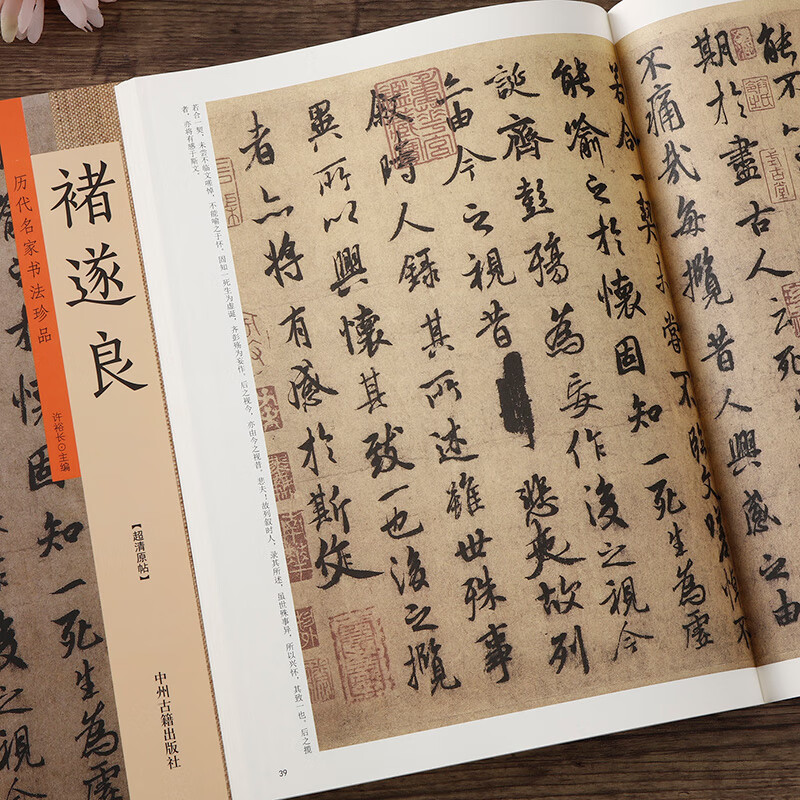 历代名家书法珍品
褚遂良
许裕长⊙主编
【超清原帖】
中州古籍出版社
能不
期於盡古人云死生
不痛哉每攬昔人興感之由
若合一契未嘗不臨文嗟悼不
能喻之於懷固知一死生為虛
誕齊彭殤為妄作後之視今
亦由今之視昔悲夫故列
敘時人錄其所述雖世殊事
異所以興懷其致一也後之攬
者亦將有感於斯文
若合一契，未尝不临文嗟悼，不能喻之于怀。固知一死生为虚诞，齐彭殇为妄作。后之视今，亦由今之视昔，悲夫！故列叙时人，录其所述，虽世殊事异，所以兴怀，其致一也。后之揽
者，亦将有感于斯文。
39